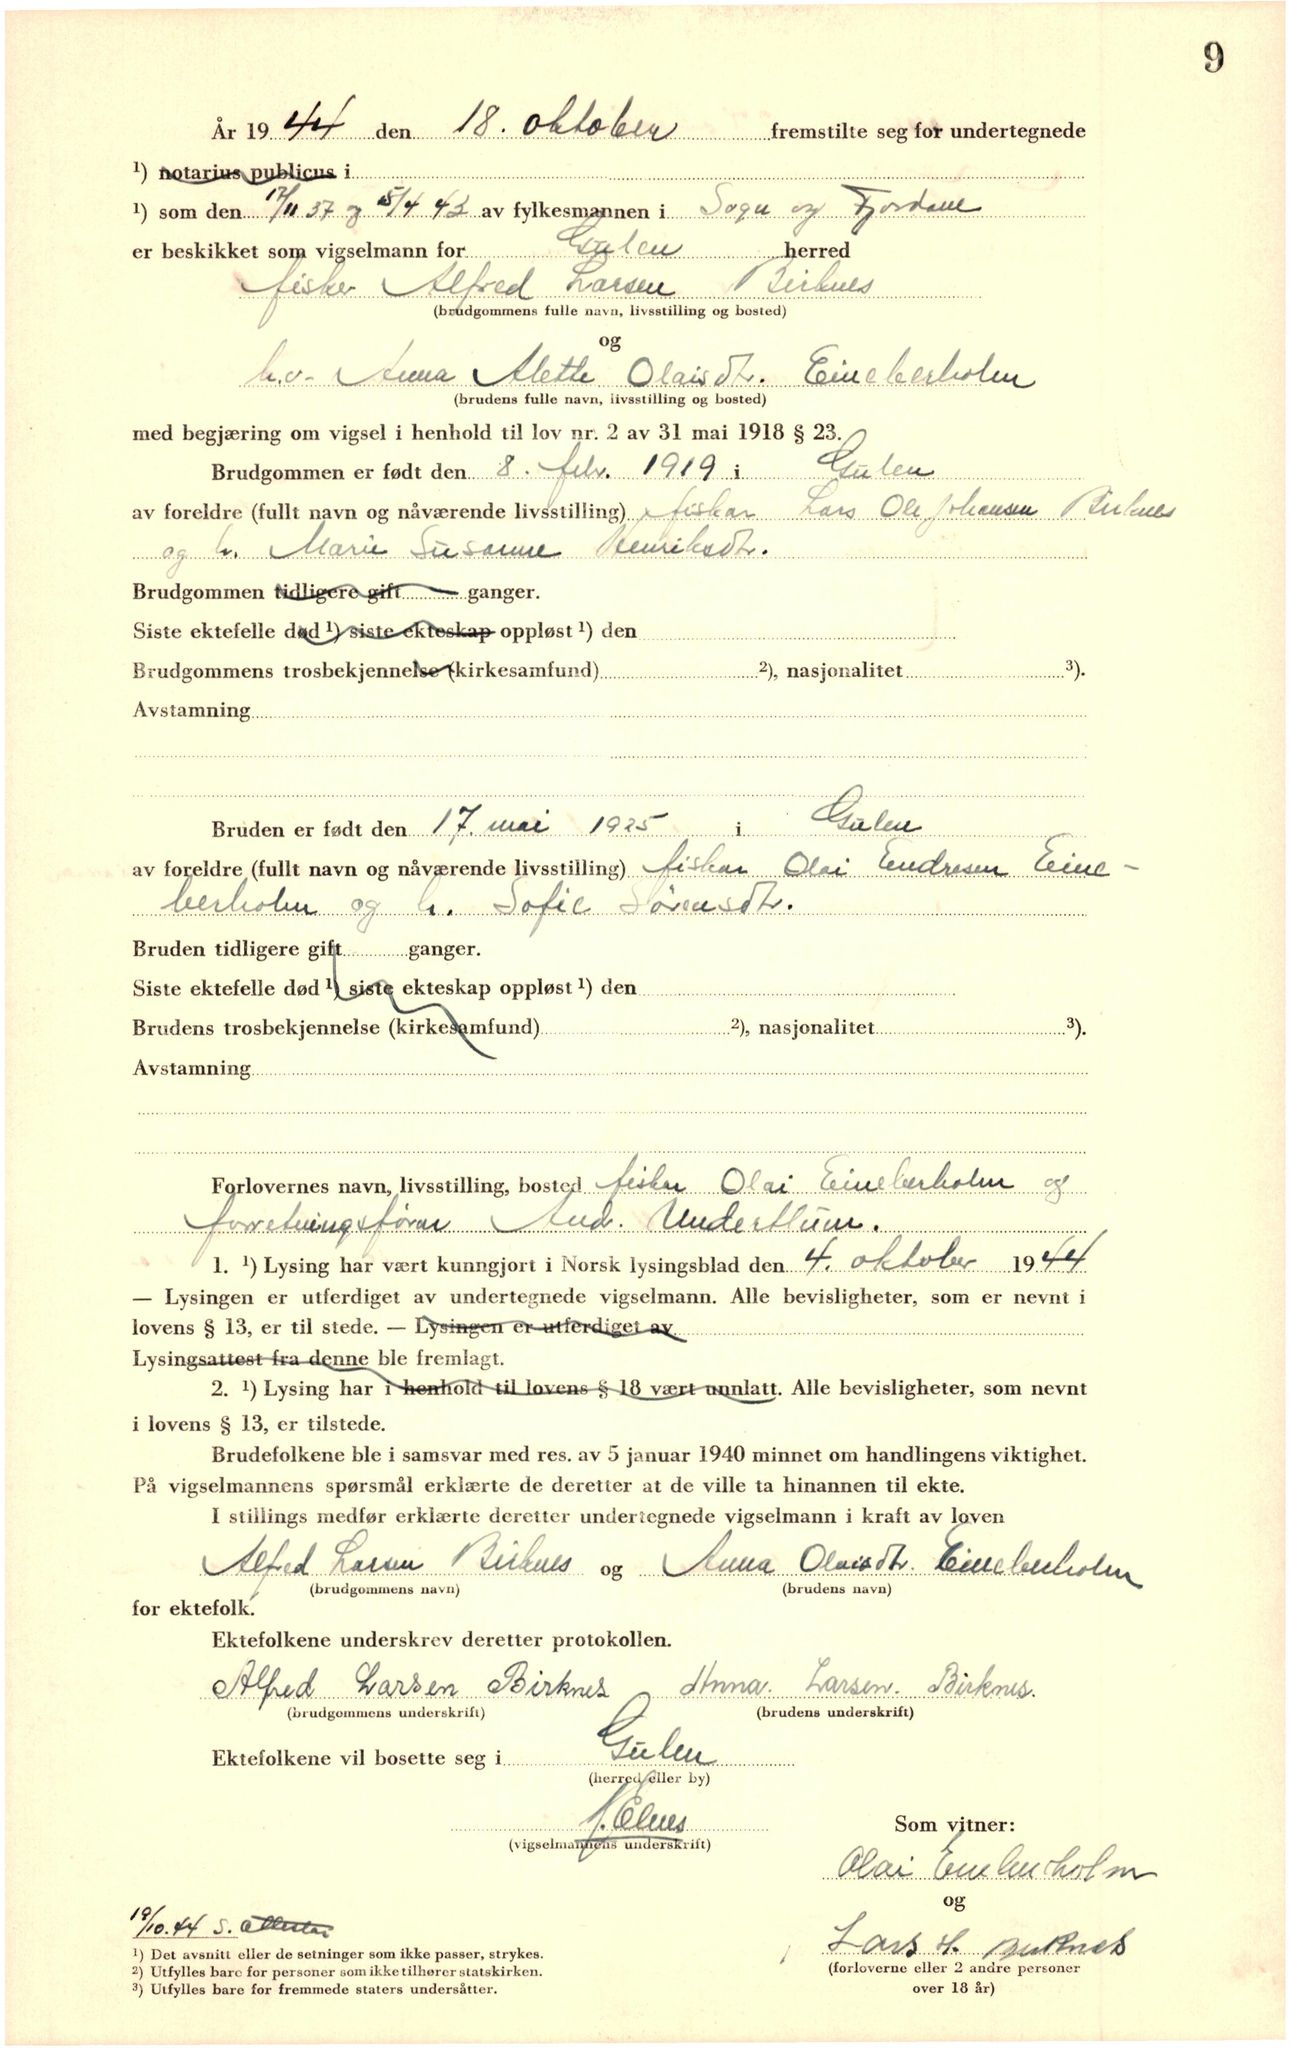 9
År 1944 den 18. oktober fremstilte seg for undertegnede
¹) notarius publicus i
¹) som den 17/11 37 og 15/4 43 av fylkesmannen i Sogn og Fjordane
er beskikket som vigselmann for Gulen herred
fisker Alfred Larsen Birknes
(brudgommens fulle navn, livsstilling og bosted)
og
h.v. Anna Alette Olaisdtr. Eineberholm
(brudens fulle navn, livsstilling og bosted)
med begjæring om vigsel i henhold til lov nr. 2 av 31 mai 1918 § 23.
Brudgommen er født den 8. febr. 1919 i Gulen
av foreldre (fullt navn og nåværende livsstilling) fiskar Lars Ole Johansen Birknes
og h. Marie Susanne Henriksdtr.
Brudgommen tidligere gift ganger.
Siste ektefelle død ¹) siste ekteskap oppløst ¹) den
Brudgommens trosbekjennelse (kirkesamfund) ²), nasjonalitet ³).
Avstamning
Bruden er født den 17. mai 1925 i Gulen
av foreldre (fullt navn og nåværende livsstilling) fiskar Olai Endresen Eine-
berholm og h. Sofie Sørensdtr.
Bruden tidligere gift ganger.
Siste ektefelle død ¹) siste ekteskap oppløst ¹) den
Brudens trosbekjennelse (kirkesamfund) ²), nasjonalitet ³).
Avstamning
Forlovernes navn, livsstilling, bosted fisker Olai Eineberholm og
forretningsførar And. Undertun.
1. ¹) Lysing har vært kunngjort i Norsk lysingsblad den 4. oktober 1944
— Lysingen er utferdiget av undertegnede vigselmann. Alle bevisligheter, som er nevnt i
lovens § 13, er til stede. — Lysingen er utferdiget av
Lysingsattest fra denne ble fremlagt.
2. ¹) Lysing har i henhold til lovens § 18 vært unnlatt. Alle bevisligheter, som nevnt
i lovens § 13, er tilstede.
Brudefolkene ble i samsvar med res. av 5 januar 1940 minnet om handlingens viktighet.
På vigselmannens spørsmål erklærte de deretter at de ville ta hinannen til ekte.
I stillings medfør erklærte deretter undertegnede vigselmann i kraft av loven
Alfred Larsen Birknes og Anna Olaisdtr. Eineberholm
(brudgommens navn) (brudens navn)
for ektefolk.
Ektefolkene underskrev deretter protokollen.
Alfred Larsen Birknes Anna. Larsen. Birknes.
(brudgommens underskrift) (brudens underskrift)
Ektefolkene vil bosette seg i Gulen
(herred eller by)
Elnes
(vigselmannens underskrift)
Som vitner:
Olai Eineberholm
og
Lars H. Birknes
(forloverne eller 2 andre personer
over 18 år)
19/10.44 S.
¹) Det avsnitt eller de setninger som ikke passer, strykes.
²) Utfylles bare for personer som ikke tilhører statskirken.
³) Utfylles bare for fremmede staters undersåtter.